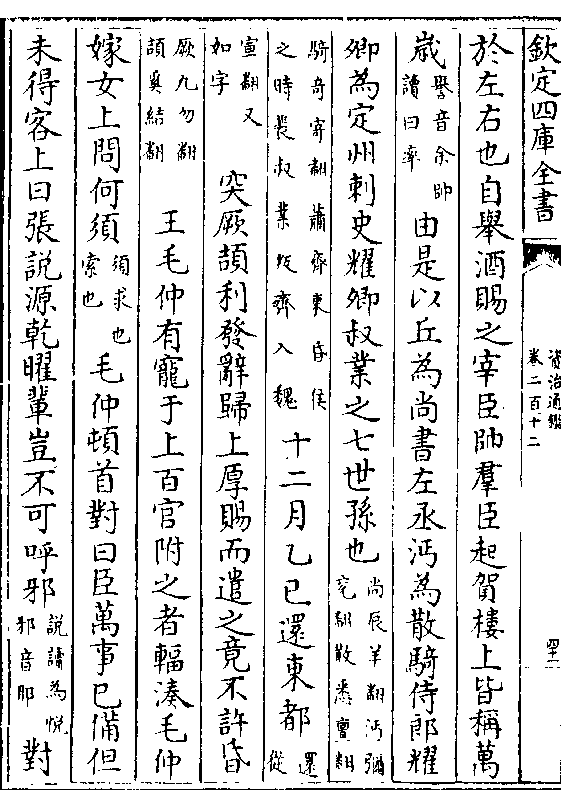 欽定四庫全書
資治通鑑
卷二百十二
四十一
於左右也自舉酒賜之宰臣帥羣臣起賀樓上皆稱萬
歲譽音余帥讀曰率由是以丘為尚書左丞沔為散騎侍郎耀
卿為定州刺史耀卿叔業之七世孫也尚辰羊翻沔彌兖翻散悉亶翻
騎奇寄翻蕭齊東昏侯之時裴叔業叛齊入魏十二月乙巳還東都還從
宣翻又如字突厥頡利發辭歸上厚賜而遣之竟不許昏
厥九勿翻頡奚結翻王毛仲有寵于上百官附之者輻湊毛仲
嫁女上問何須須求也索也毛仲頓首對曰臣萬事已備但
未得客上曰張說源乾曜輩豈不可呼邪說讀為悅邪音耶對